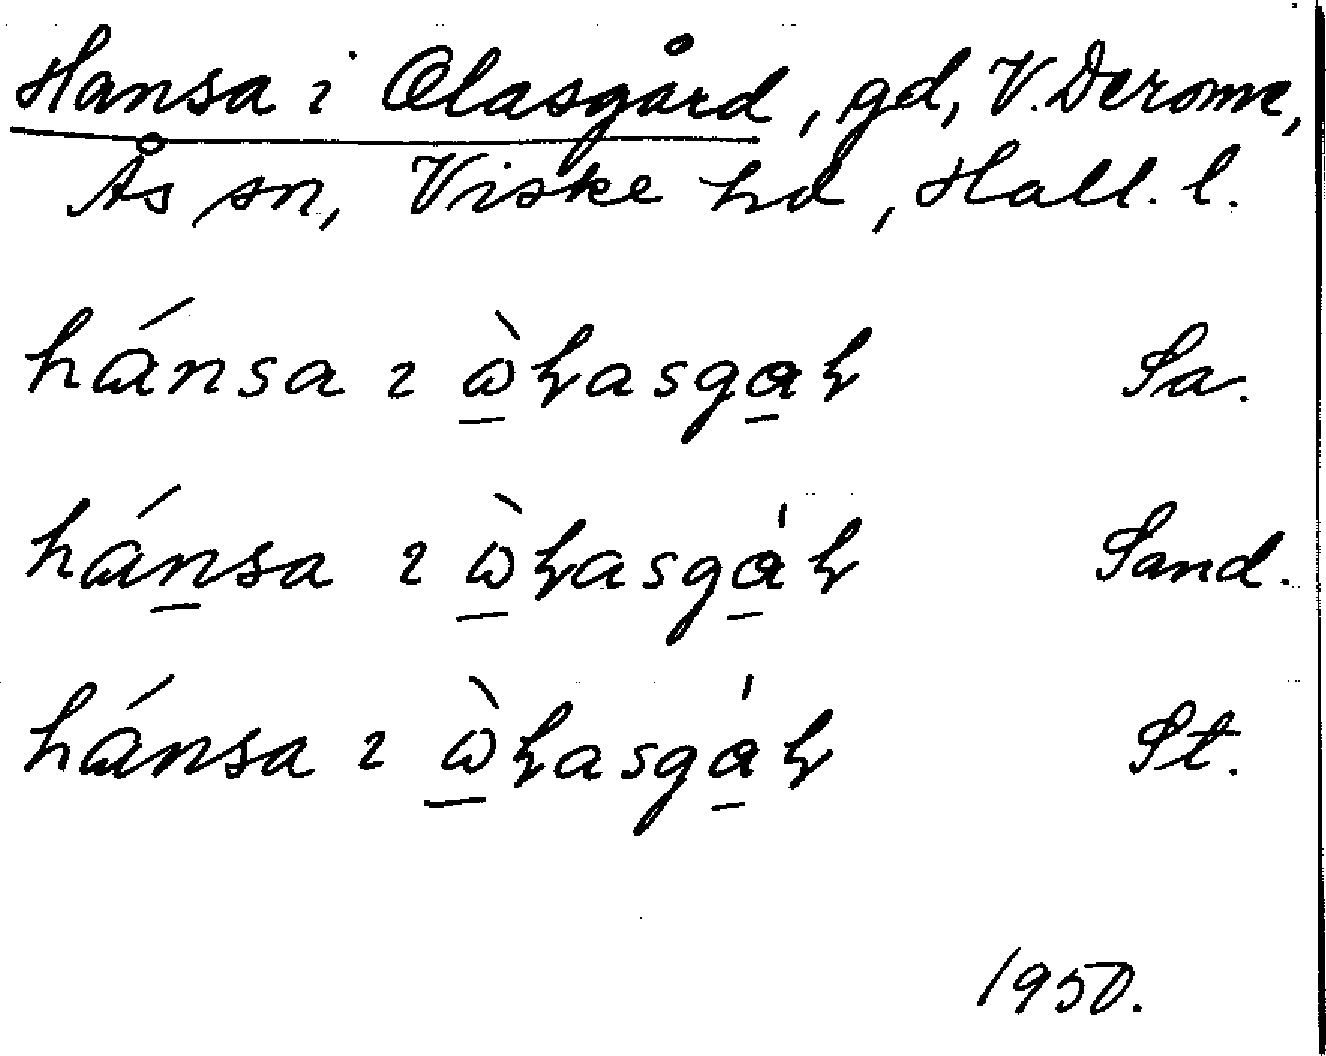 Hansa i Olasgård, gd, V. Derome,
Ås sn, Viske hd, Hall. l.
hánsa ɿ ὼ̲ɮasga̲ɮ Sa.
hán̲sa ɿ ὼ̲ɮasgá̲ɮ Sand.
hánsa ɿ ὼ̲ɮasgá̲ɮ St.
1950.